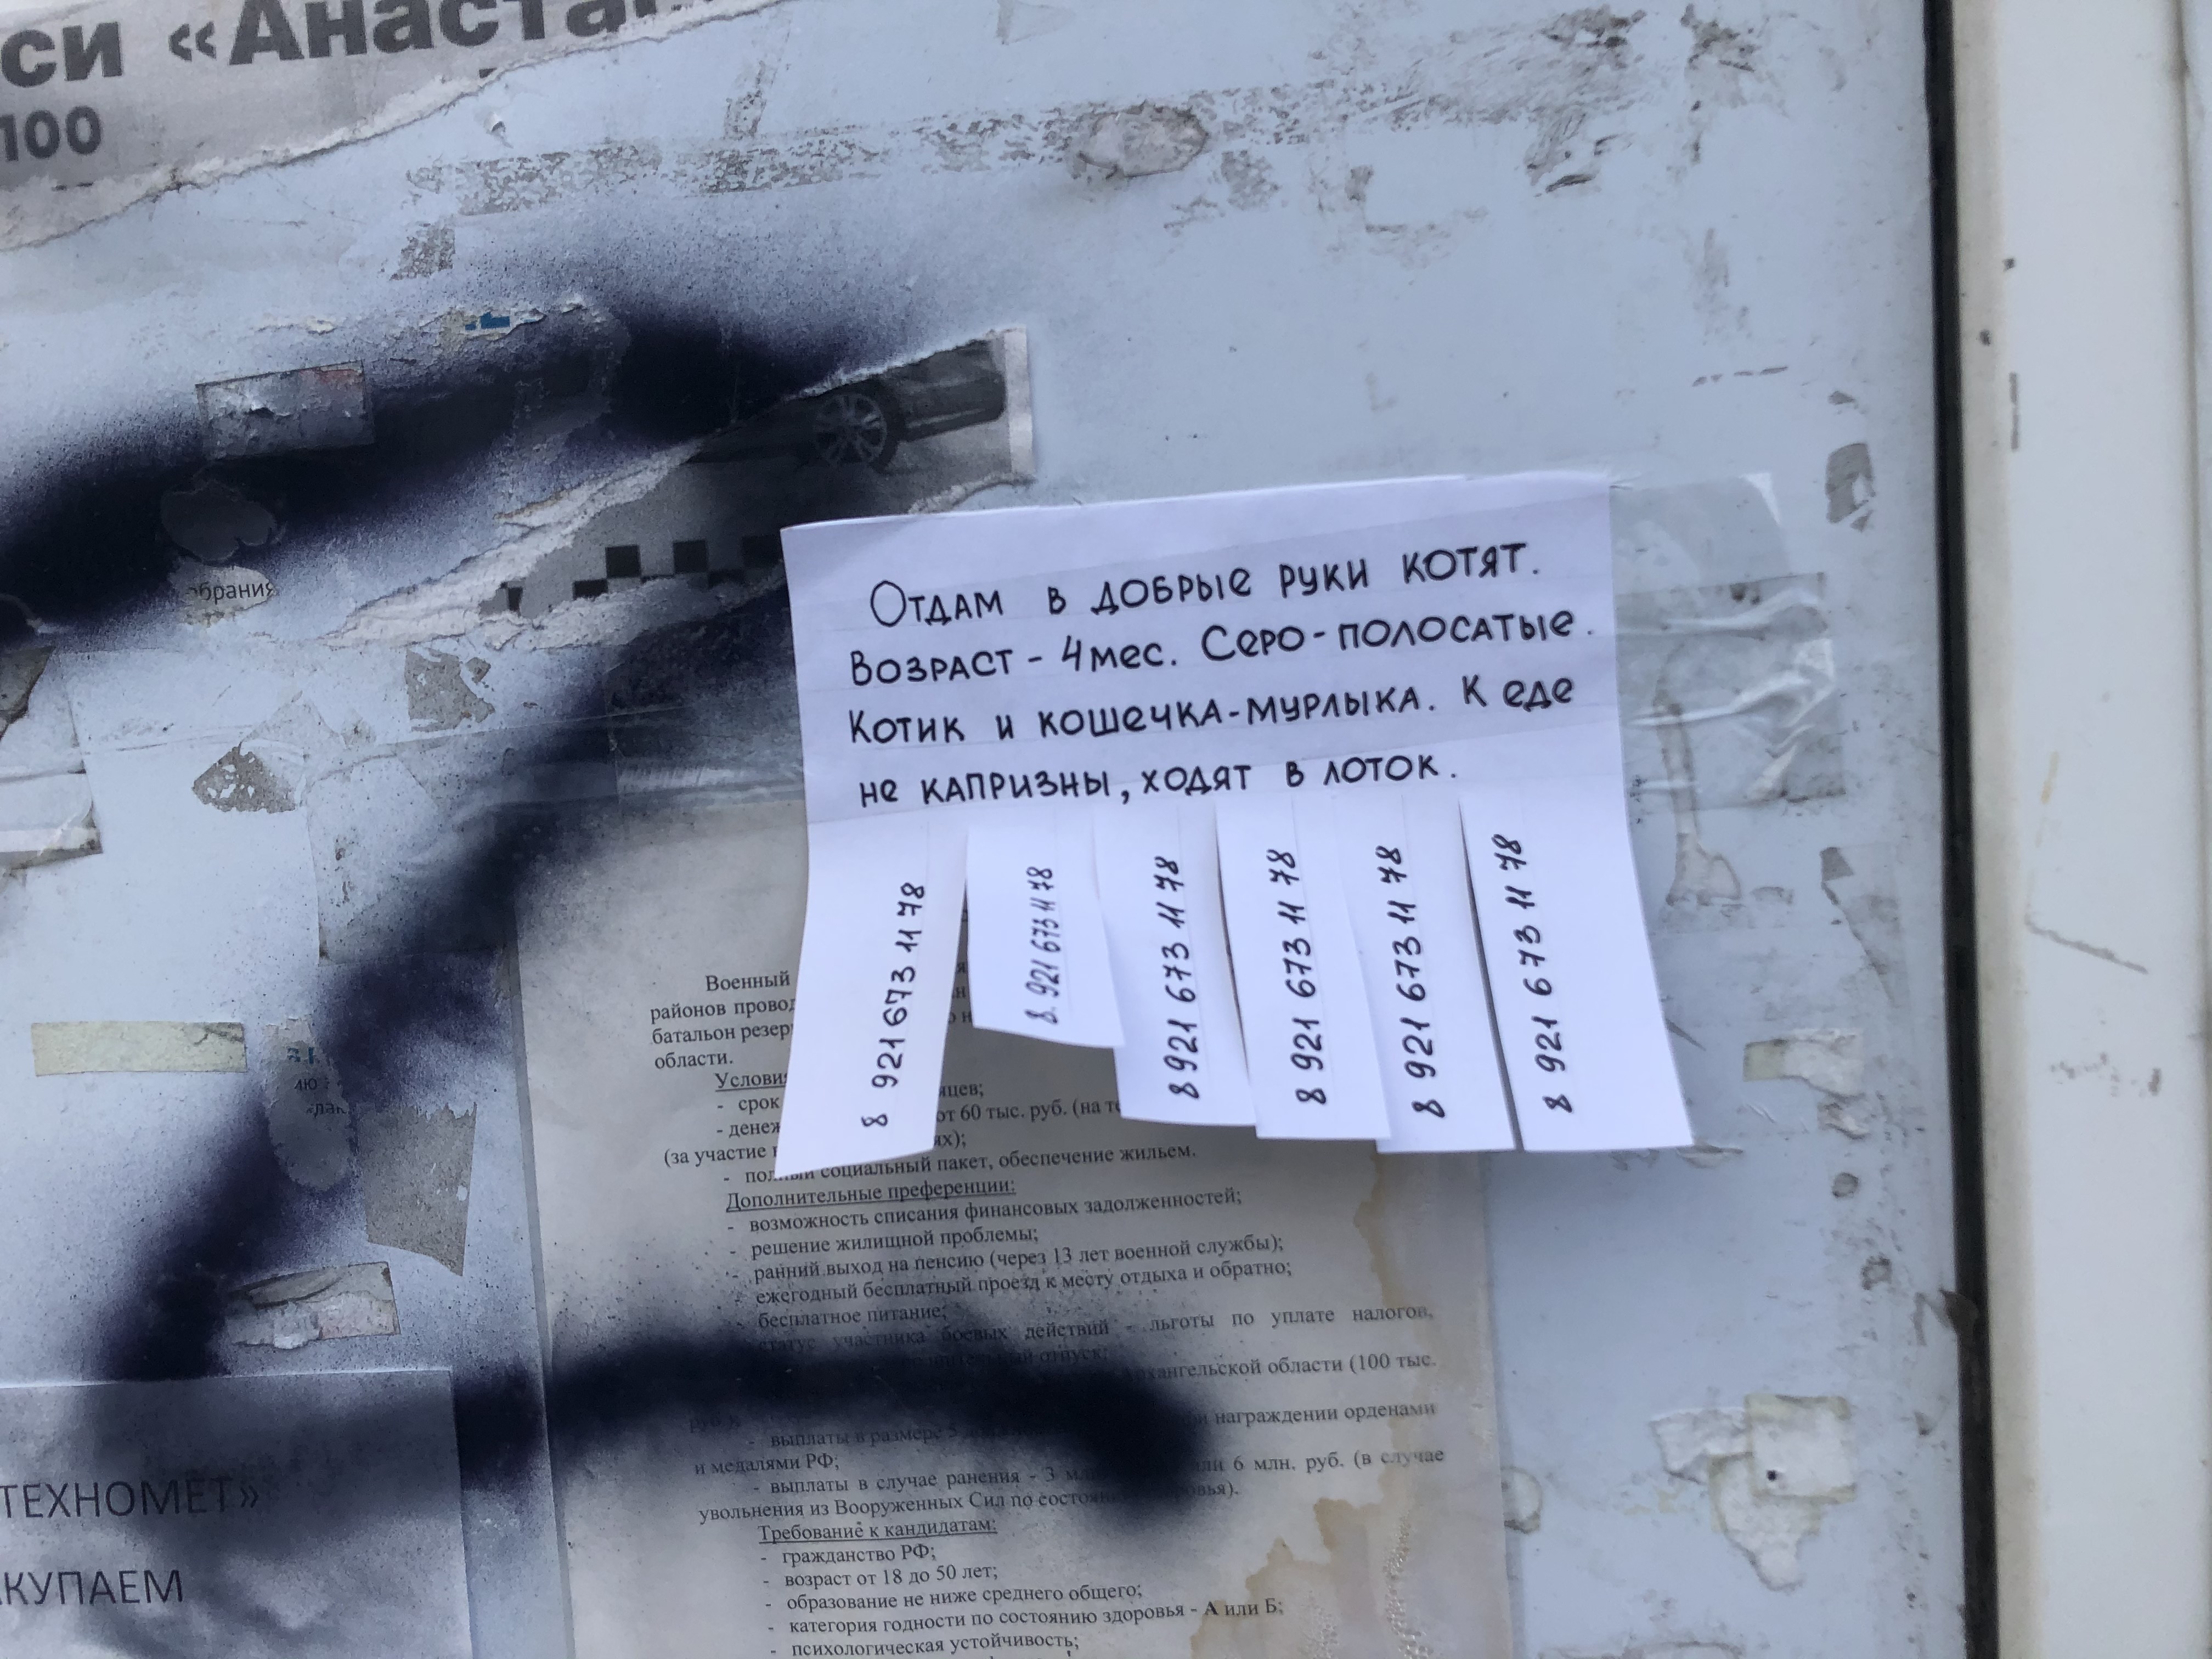 си «Анаста
100
обрания
Отдам в добрые руки котят.
Возраст - 4 мес. Серо-полосатые.
Котик и кошечка-мурлыка. К еде
не капризны, ходят в лоток.
8 921 673 11 78
8. 921 673 11 78
8 921 673 11 78
8 921 673 11 78
8 921 673 11 78
8 921 673 11 78
Военный
районов провод
батальон резер
области.
Услови
- срок яцев;
- денеж от 60 тыс. руб. (на те
(за участие ях);
- социальный пакет, обеспечение жильем.
Дополнительные преференции:
- возможность списания финансовых задолженностей;
- решение жилищной проблемы;
- ранний выход на пенсию (через 13 лет военной службы);
- ежегодный бесплатный проезд к месту отдыха и обратно;
- бесплатное питание;
статус участника боевых действий - льготы по уплате налогов,
отпуск;
рхангельской области (100 тыс.
- выплаты в размере награждении орденами
и медалями РФ;
- выплаты в случае ранения - 3 6 млн. руб. (в случае
увольнения из Вооруженных Сил по
Требование к кандидатам:
- гражданство РФ;
- возраст от 18 до 50 лет;
- образование не ниже среднего общего;
- категория годности по состоянию здоровья - А или Б;
- психологическая устойчивость;
ТЕХНОМЕТ»
КУПАЕМ